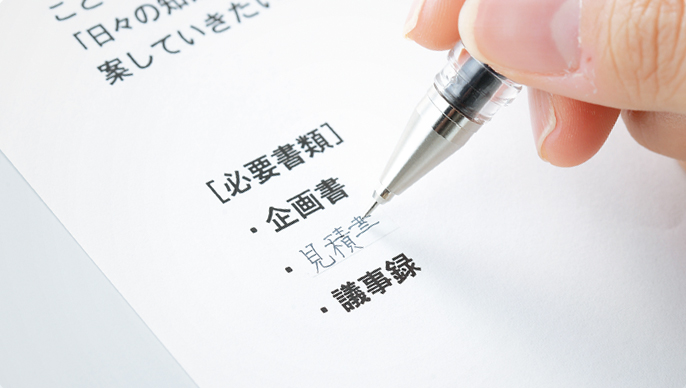 こと
「日々の知
案していきたい
[必要書類]
・企画書
・見積書
・議事録